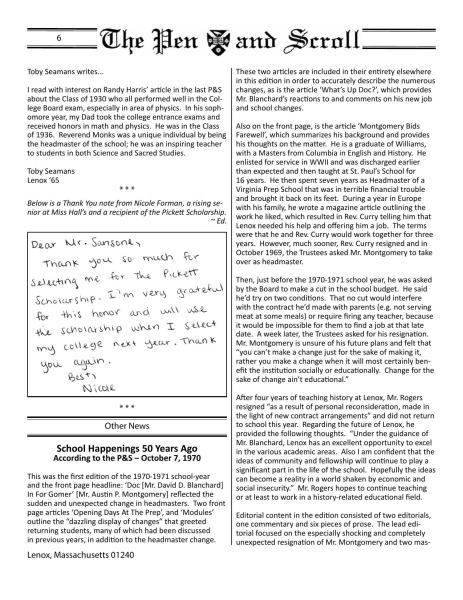 6
The Pen and Scroll
Toby Seamans writes...
I read with interest on Randy Harris' article in the last P&S
about the Class of 1930 who all performed well in the Col-
lege Board exam, especially in area of physics. In his soph-
omore year, my Dad took the college entrance exams and
received honors in math and physics. He was in the Class
of 1936. Reverend Monks was a unique individual by being
the headmaster of the school; he was an inspiring teacher
to students in both Science and Sacred Studies.
Toby Seamans
Lenox '65
* * *
Below is a Thank You note from Nicole Forman, a rising se-
nior at Miss Hall's and a recipient of the Pickett Scholarship.
~ Ed.
Dear Mr. Sansone,
Thank you so much for
selecting me for the Pickett
Scholarship. I'm very grateful
for this honor and will use
the scholarship when I select
my college next year. Thank
you again.
Best,
Nicole
* * *
Other News
School Happenings 50 Years Ago
According to the P&S – October 7, 1970
This was the first edition of the 1970-1971 school-year
and the front page headline: 'Doc [Mr. David D. Blanchard]
In For Gomer' [Mr. Austin P. Montgomery] reflected the
sudden and unexpected change in headmasters. Two front
page articles 'Opening Days At The Prep', and 'Modules'
outline the "dazzling display of changes" that greeted
returning students, many of which had been discussed
in previous years, in addition to the headmaster change.
Lenox, Massachusetts 01240
These two articles are included in their entirety elsewhere
in this edition in order to accurately describe the numerous
changes, as is the article 'What's Up Doc?', which provides
Mr. Blanchard's reactions to and comments on his new job
and school changes.
Also on the front page, is the article 'Montgomery Bids
Farewell', which summarizes his background and provides
his thoughts on the matter. He is a graduate of Williams,
with a Masters from Columbia in English and History. He
enlisted for service in WWII and was discharged earlier
than expected and then taught at St. Paul's School for
16 years. He then spent seven years as Headmaster of a
Virginia Prep School that was in terrible financial trouble
and brought it back on its feet. During a year in Europe
with his family, he wrote a magazine article outlining the
work he liked, which resulted in Rev. Curry telling him that
Lenox needed his help and offering him a job. The terms
were that he and Rev. Curry would work together for three
years. However, much sooner, Rev. Curry resigned and in
October 1969, the Trustees asked Mr. Montgomery to take
over as headmaster.
Then, just before the 1970-1971 school year, he was asked
by the Board to make a cut in the school budget. He said
he'd try on two conditions. That no cut would interfere
with the contract he'd made with parents (e.g. not serving
meat at some meals) or require firing any teacher, because
it would be impossible for them to find a job at that late
date. A week later, the Trustees asked for his resignation.
Mr. Montgomery is unsure of his future plans and felt that
"you can't make a change just for the sake of making it,
rather you make a change when it will most certainly ben-
efit the institution socially or educationally. Change for the
sake of change ain't educational."
After four years of teaching history at Lenox, Mr. Rogers
resigned "as a result of personal reconsideration, made in
the light of new contract arrangements" and did not return
to school this year. Regarding the future of Lenox, he
provided the following thoughts. "Under the guidance of
Mr. Blanchard, Lenox has an excellent opportunity to excel
in the various academic areas. Also I am confident that the
ideas of community and fellowship will continue to play a
significant part in the life of the school. Hopefully the ideas
can become a reality in a world shaken by economic and
social insecurity." Mr. Rogers hopes to continue teaching
or at least to work in a history-related educational field.
Editorial content in the edition consisted of two editorials,
one commentary and six pieces of prose. The lead edi-
torial focused on the especially shocking and completely
unexpected resignation of Mr. Montgomery and two mas-